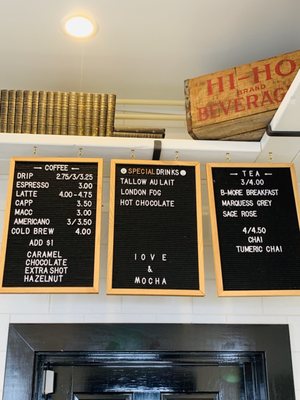 HI-HO
BRAND
BEVERAGE
COFFEE
DRIP 2.75/3/3.25
ESPRESSO 3.00
LATTE 4.00-4.75
CAPP 3.50
MACC 3.00
AMERICANO 3/3.50
COLD BREW 4.00
ADD $1
CARAMEL
CHOCOLATE
EXTRA SHOT
HAZELNUT
SPECIAL DRINKS
TALLOW AU LAIT
LONDON FOG
HOT CHOCOLATE
LOVE
&
MOCHA
TEA
3/4.00
B-MORE BREAKFAST
MARQUESS GREY
SAGE ROSE
4/4.50
CHAI
TUMERIC CHAI